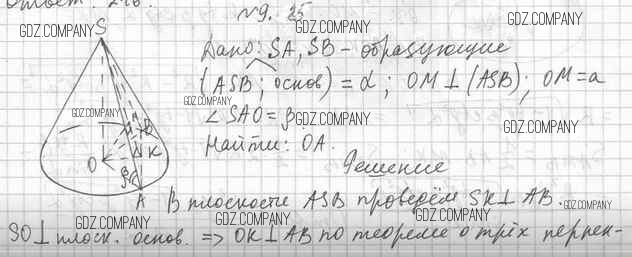 Ответ: 2
№9. 25
GDZ.COMPANY
GDZ.COMPANY
GDZ.COMPANY
S
Дано: SA, SB - образующие
(ASB; основ) = α; OM⊥(ASB); OM=a
GDZ.COMPANY
GDZ.COMPANY
∠SAO = β
GDZ.COMPANY
GDZ.COMPANY
B
Найти: OA.
O
K
β
Решение
A
В плоскости ASB проведём SK⊥AB.
GDZ.COMPANY
GDZ.COMPANY
GDZ.COMPANY
GDZ.COMPANY
SO⊥плоск. основ. => OK⊥AB по теореме о трёх перпен-
GDZ.COMPANY
GDZ.COMPANY